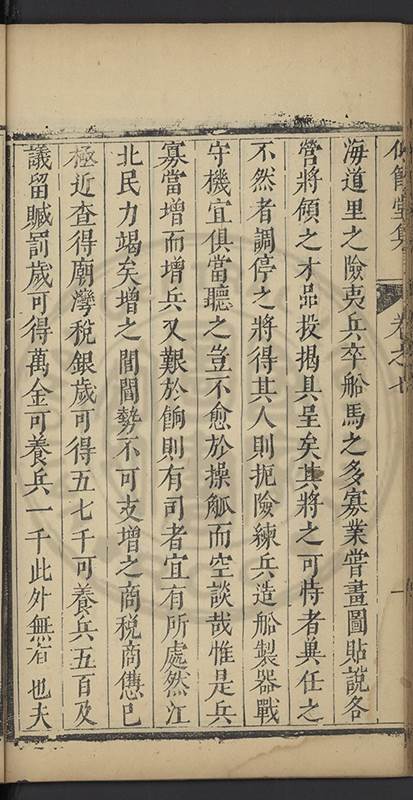 仰節堂集 卷之七 一
海道里之險夷兵卒船馬之多寡業嘗畫圖貼說各
營將領之才品投揭具呈矣其將之可恃者兼任之
不然者調停之將得其人則扼險練兵造船製器戰
守機宜俱當聽之豈不愈於操觚而空談哉惟是兵
寡當增而增兵又艱於餉則有司者宜有所處然江
北民力竭矣增之閭閻勢不可支增之商稅商憊已
極近查得廟灣稅銀歲可得五七千可養兵五百及
議留贓罰歲可得萬金可養兵一千此外無者也夫